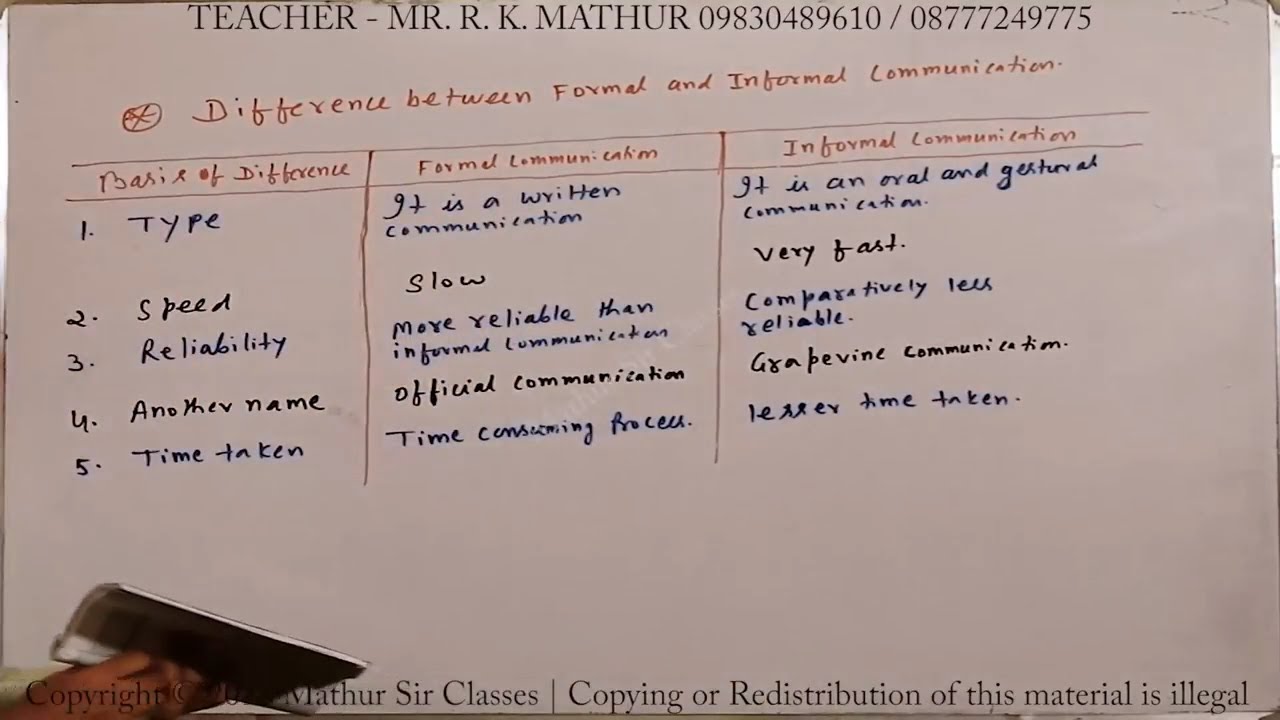 TEACHER - MR. R. K. MATHUR 09830489610 / 08777249775
Difference between Formal and Informal Communication.
Basis of Difference Formal Communication Informal Communication
1. Type It is a written It is an oral and gestural
communication communication.
2. Speed Slow Very fast.
3. Reliability More reliable than Comparatively less
informal communication reliable.
4. Another name Official communication Grapevine communication.
5. Time taken Time consuming Process. lesser time taken.
Copyright © Mathur Sir Classes | Copying or Redistribution of this material is illegal